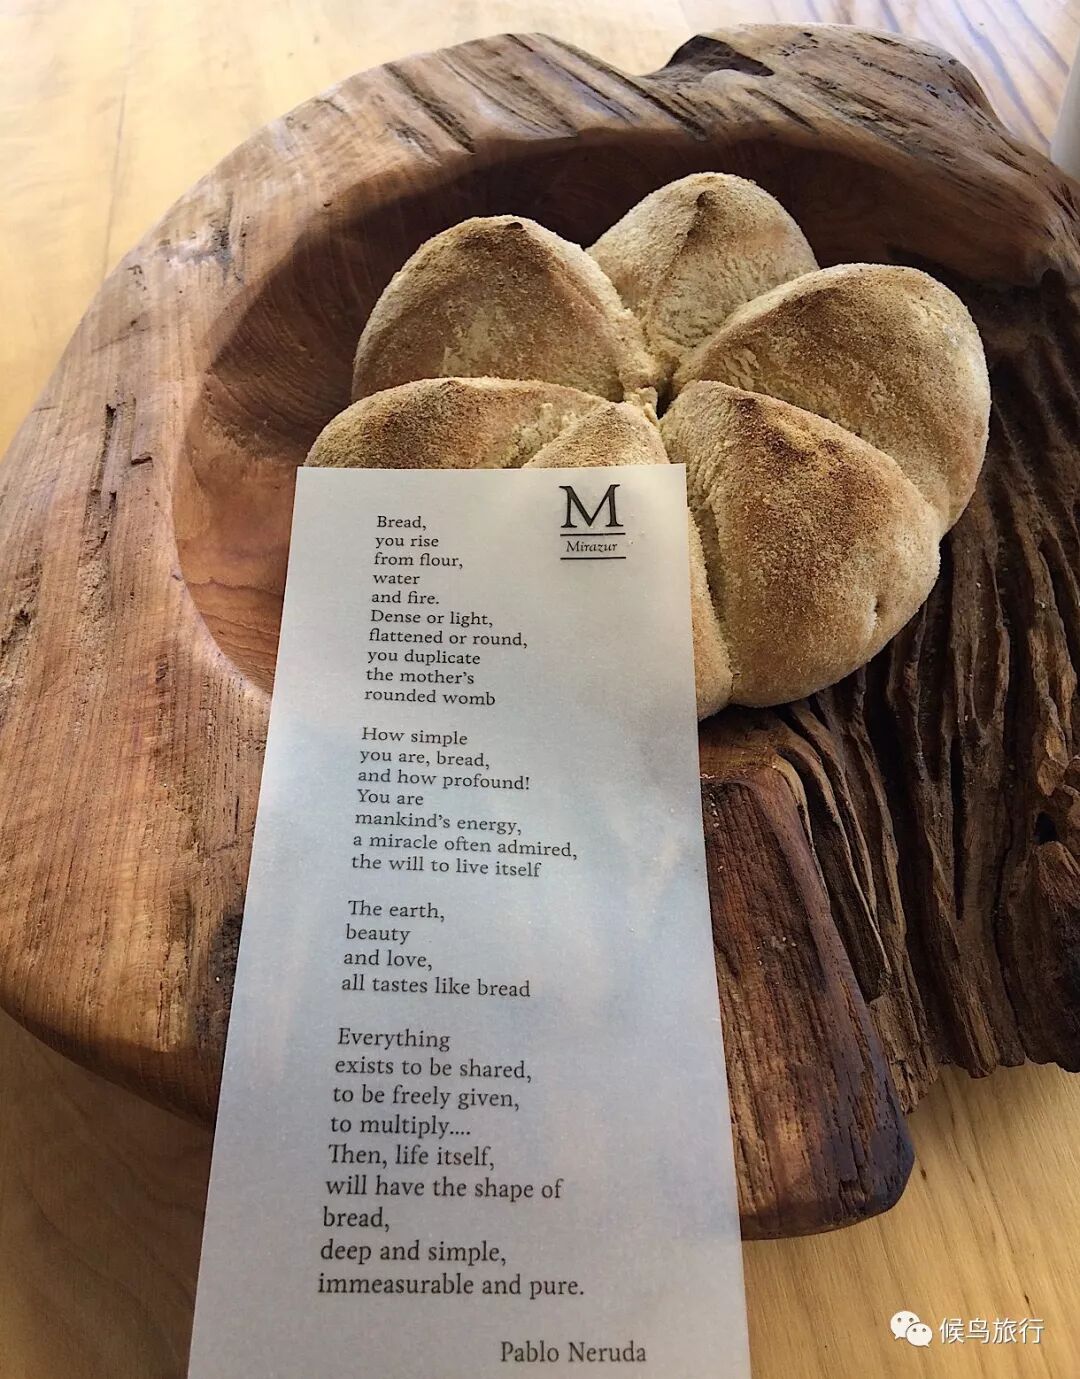 M
Mirazur
Bread,
you rise
from flour,
water
and fire.
Dense or light,
flattened or round,
you duplicate
the mother's
rounded womb
How simple
you are, bread,
and how profound!
You are
mankind's energy,
a miracle often admired,
the will to live itself
The earth,
beauty
and love,
all tastes like bread
Everything
exists to be shared,
to be freely given,
to multiply....
Then, life itself,
will have the shape of
bread,
deep and simple,
immeasurable and pure.
Pablo Neruda
候鸟旅行